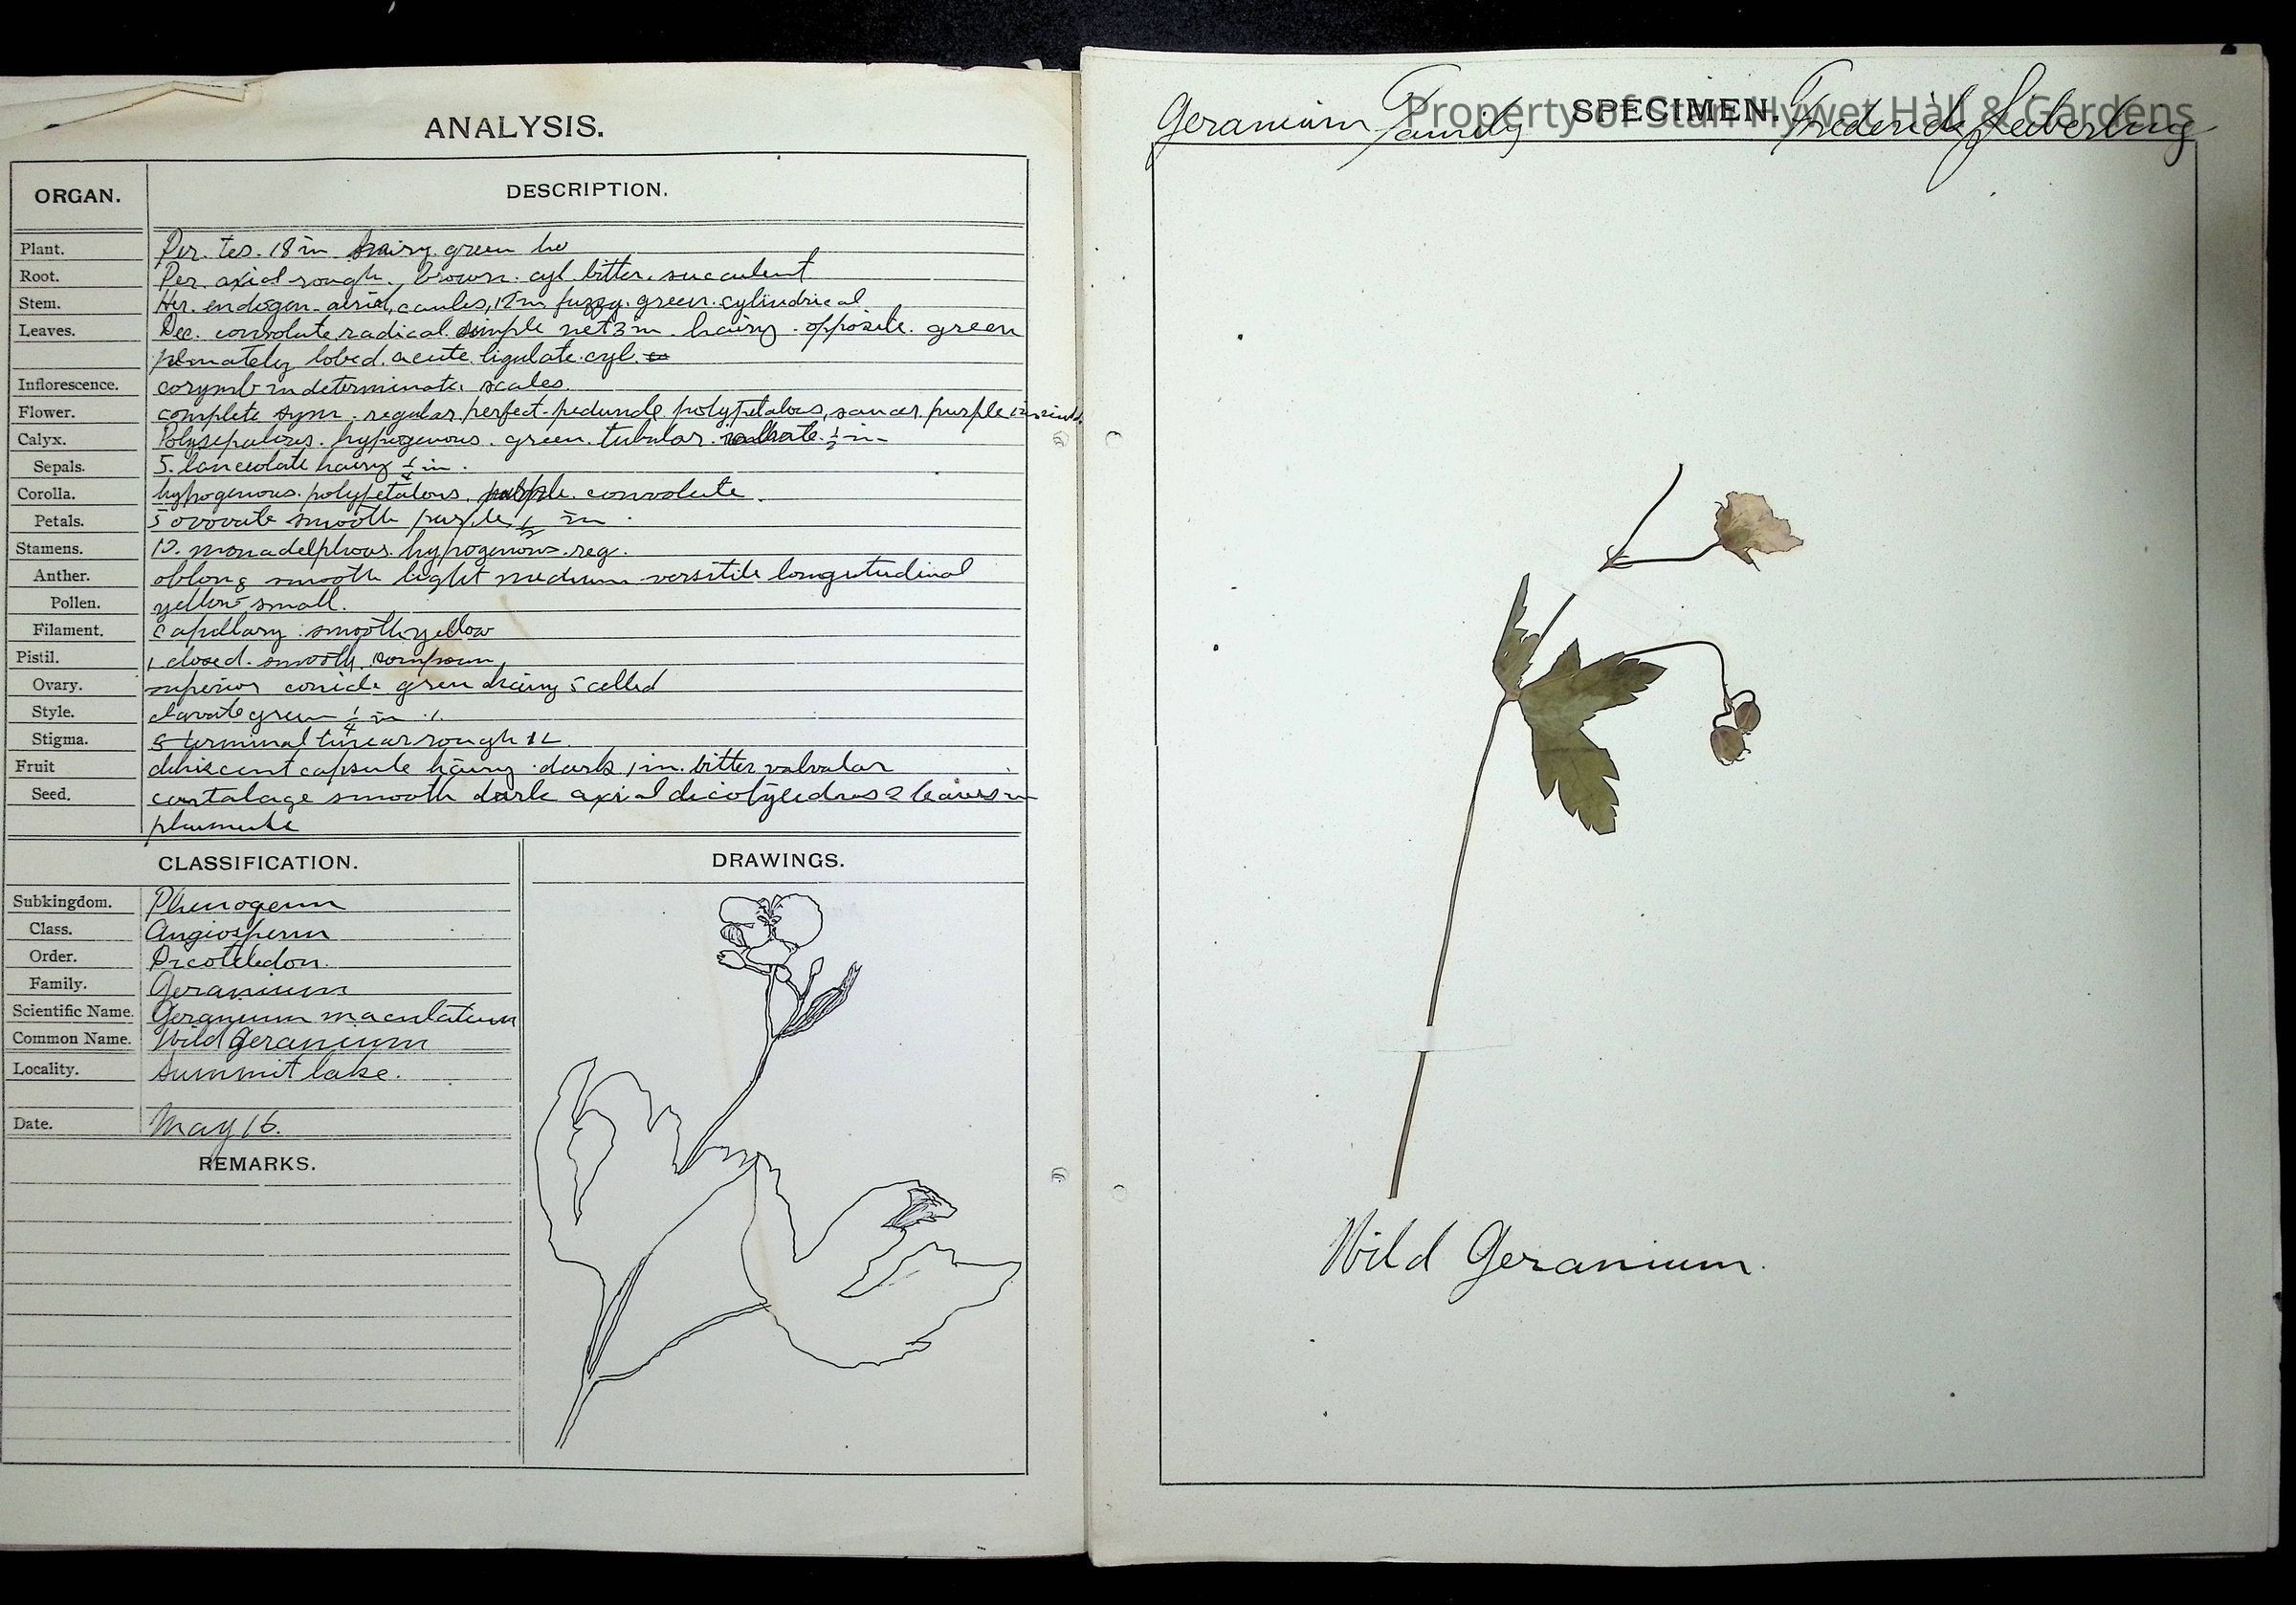 ANALYSIS.
ORGAN. DESCRIPTION.
Plant. Per. tes. 18 in hairy. green
Root. Per. axial rough. brown. cyl. bitter. succulent
Stem. Her. endogen. aerial, caules, 18 in fuzzy. green. cylindrical
Leaves. Dec. convolute radical. simple net 3 in hairy. opposite. green
lobed. acute. ligulate. cyl.
Inflorescence. corymb indeterminate. scales.
Flower. complete sym. regular. perfect. peduncle polypetalous, saucer. purple
Calyx. Polysepalous. hypogenous. green. tubular. ½ in-
Sepals. 5. lanceolate hairy in.
Corolla. hypogenous. polypetalous. purple. convolute.
Petals. 5 ovovate smooth purple ½ in.
Stamens. 10. monadelphous. hypogenous. reg.
Anther. oblong smooth light medium versitile longitudinal
Pollen. yellow small.
Filament. capillary. smooth yellow
Pistil. 1 closed. smooth.
Ovary. superior green hairy 5 celled
Style. clavate green ¼ in
Stigma. 5 terminal rough
Fruit dehiscent capsule hairy. dark 1 in. bitter valvular
Seed. smooth dark axial 2 leaves
CLASSIFICATION. DRAWINGS.
Subkingdom. Phenogenm
Class. Angiosperm
Order. Dicoteledon.
Family. Geranium
Scientific Name. Geranium maculatum
Common Name. Wild Geranium
Locality. Summit lake.
Date. May 16.
REMARKS.
Geranium Family SPECIMEN. Frederick Seiberling
Property of Stan Hywet Hall & Gardens
Wild Geranium.